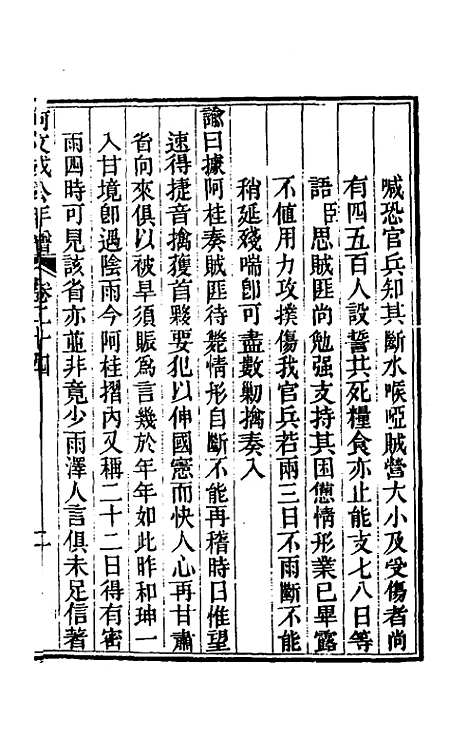 喊恐官兵知其斷水喉啞賊營大小及受傷者尚
有四五百人設誓共死糧食亦止能支七八日等
語臣思賊匪尚勉强支持其困憊情形業已畢露
不值用力攻撲傷我官兵若兩三日不雨斷不能
稍延殘喘卽可盡數勦擒奏入
諭曰據阿桂奏賊匪待斃情形自斷不能再稽時日惟望
速得捷音擒獲首夥要犯以伸國憲而快人心再甘肅
省向來俱以被旱須賑爲言幾於年年如此昨和珅一
入甘境卽遇陰雨今阿桂摺內又稱二十二日得有密
雨四時可見該省亦並非竟少雨澤人言俱未足信著
阿文成公年譜 卷二十四 二